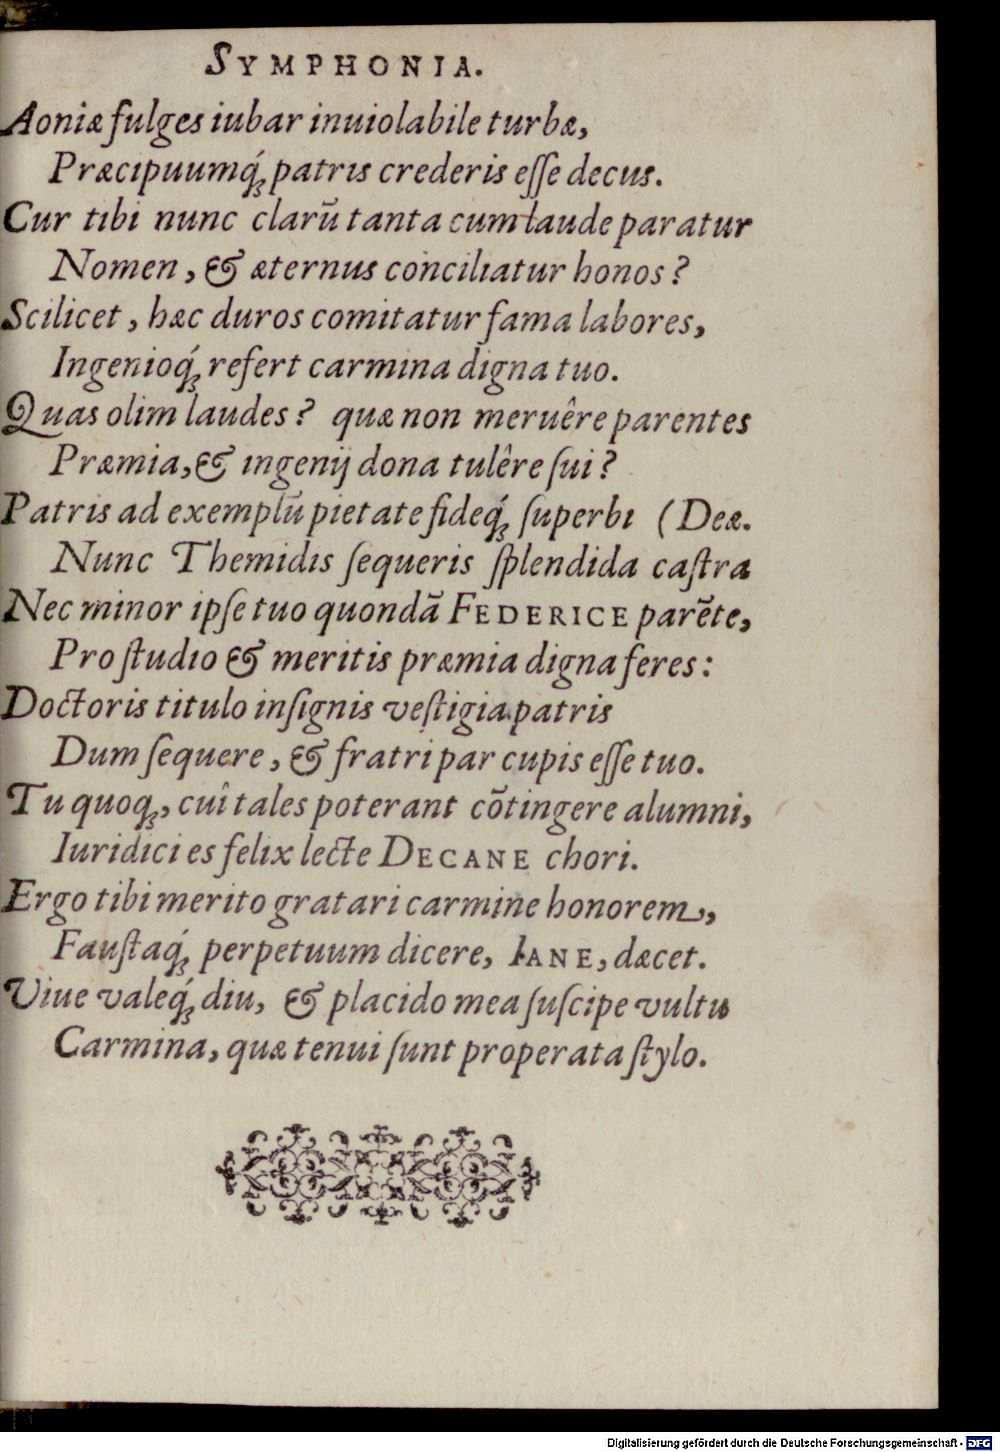 SYMPHONIA.
Aoniæ fulges iubar inuiolabile turbæ,
Præcipuumq́ꝫ patris crederis eſſe decus.
Cur tibi nunc clarū tanta cum laude paratur
Nomen, & æternus conciliatur honos?
Scilicet, hæc duros comitatur fama labores,
Ingenioq́ꝫ refert carmina digna tuo.
Quas olim laudes? quæ non meruêre parentes
Præmia, & ingenij dona tulêre ſui?
Patris ad exemplū pietate fideq́ꝫ ſuperbi (Deæ.
Nunc Themidis ſequeris ſplendida caſtra
Nec minor ipſe tuo quondā FEDERICE parēte,
Pro ſtudio & meritis præmia digna feres:
Doctoris titulo inſignis veſtigia patris
Dum ſequere, & fratri par cupis eſſe tuo.
Tu quoqꝫ, cui tales poterant cōtingere alumni,
Iuridici es felix lecte DECANE chori.
Ergo tibi merito gratari carmine honorem,
Fauſtaq́ꝫ perpetuum dicere, IANE, dæcet.
Viue valeq́ꝫ diu, & placido mea ſuſcipe vultu
Carmina, quæ tenui ſunt properata ſtylo.
Digitalisierung gefördert durch die Deutsche Forschungsgemeinschaft - DFG